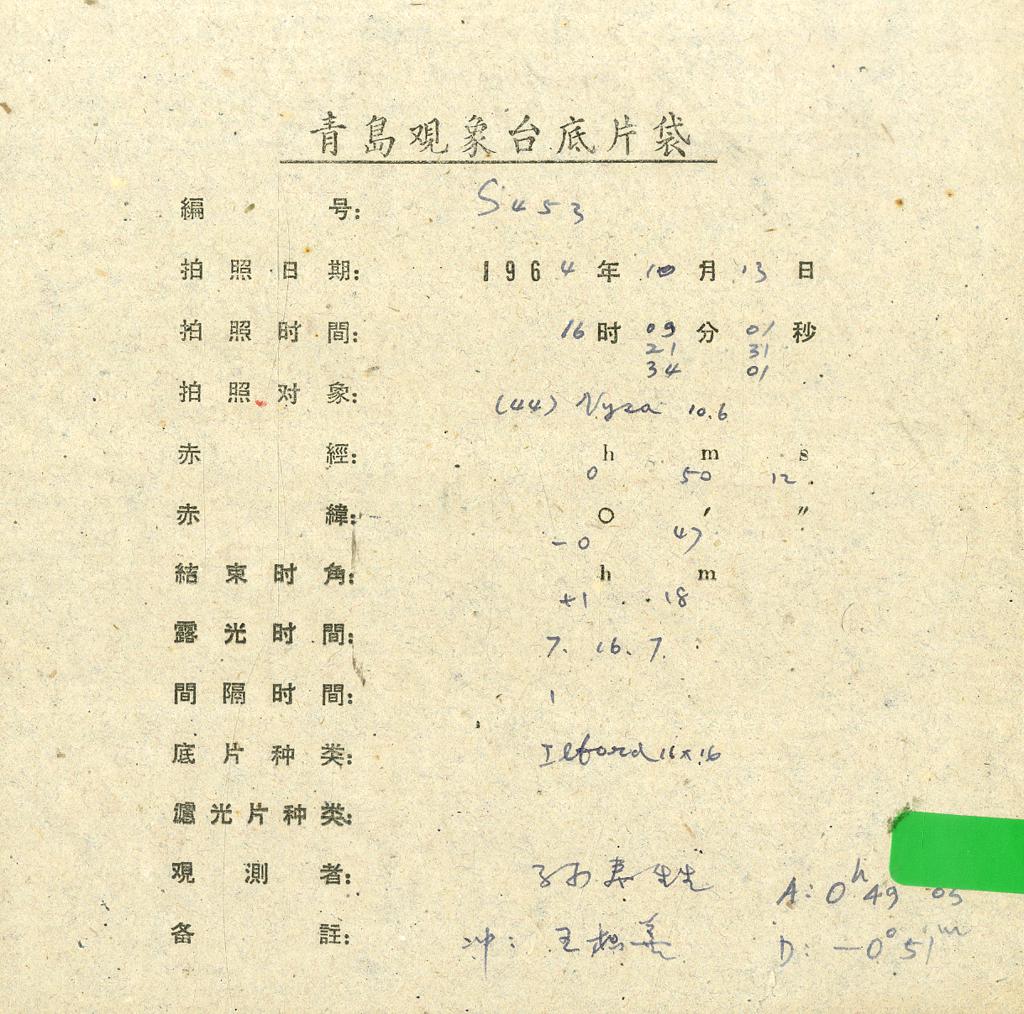 青島观象台底片袋
編 号: S453
拍照日期: 1964年10月13日
拍照时間: 16时09分01秒
21 31
34 01
拍照对象: (44) Nysa 10.6
赤 經: h m s
0 50 12
赤 緯: ○ ′ ″
-0 47
結束时角: h m
+1 18
露光时間: 7. 16. 7.
間隔时間: 1
底片种类: Ilford 16×16
濾光片种类:
观測者: 孙寿
A: 0h 49 03
备 註: 冲: 王
D: -0° 51m